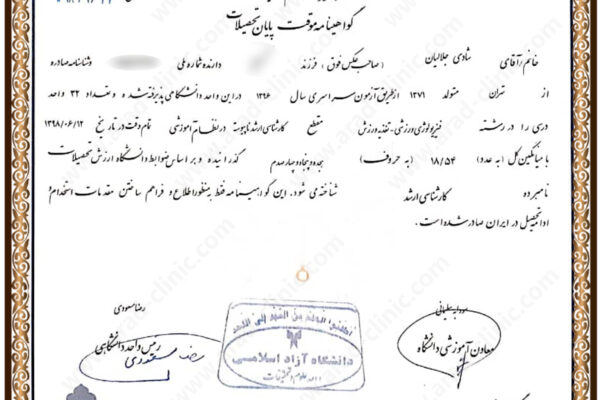 گواهینامه موقت پایان تحصیلات
خانم/آقای شادی جلالیان (صاحب عکس فوق) فرزند دارنده شماره ملی وشناسنامه صادره
از تهران متولد ۱۳۷۱ ازطریق آزمون سراسری سال ۱۳۹۶ در این واحد دانشگاهی پذیرفته شد و تعداد ۳۲ واحد
درسی را در رشته فیزیولوژی ورزشی-تغذیه ورزش مقطع کارشناسی ارشد ناپیوسته در نظام آموزشی تمام وقت در تاریخ ۱۳۹۸/۰۶/۱۲
با میانگین کل (به عدد) ۱۸/۵۴ (به حروف) هجده و پنجاه و چهار صدم گذرانیده و بر اساس ضوابط دانشگاه ارزش تحصیلات
نامبرده کارشناسی ارشد شناخته می شود. این گواهینامه فقط به منظور اطلاع و فراهم ساختن مقدمات استخدام/
ادامه تحصیل در ایران صادر شده است.
سلیمانی
معاون آموزشی دانشگاه
اطلبوا العلم من المهد إلی اللحد
دانشگاه آزاد اسلامی
واحد علوم و تحقیقات
رضا مسعودی
رئیس واحد دانشگاهی